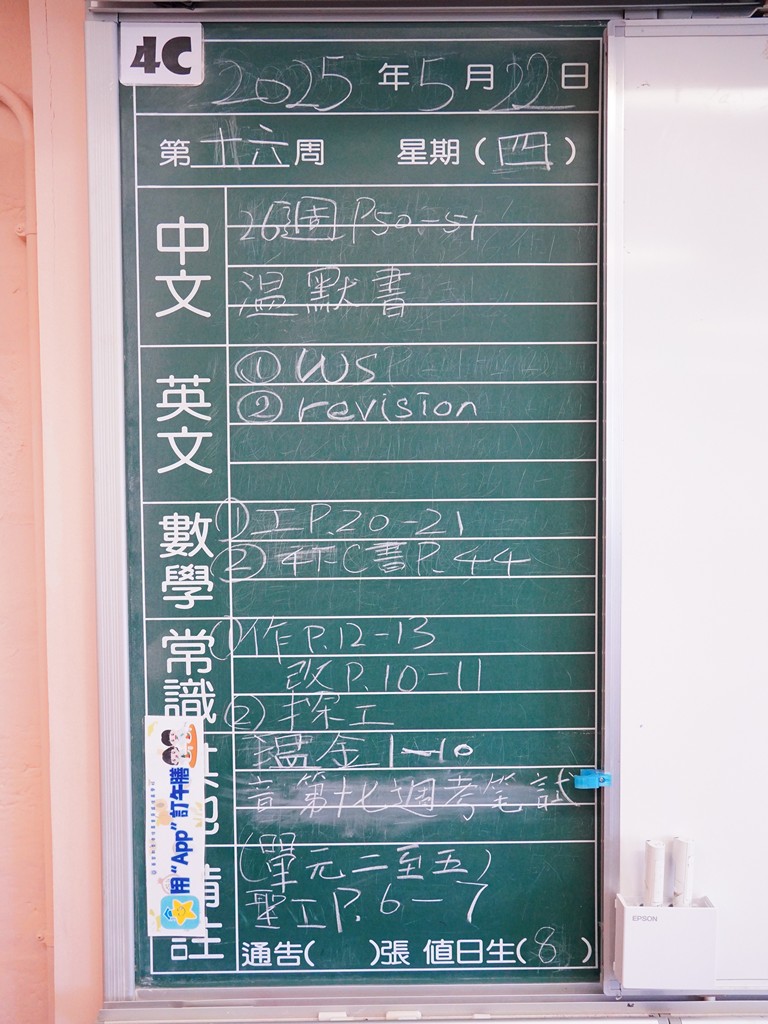 4C
2025 年 5 月 22 日
第 廿六 周 星期 ( 四 )
中文
26週 P50-51
溫默書
英文
① WS
② revision
數學
① 工 P.20-21
② 4下C書 P.44
常識
① 作 P.12-13
改 P.10-11
② 探工
溫金 1-10
音 第十七週考笔試
用 "App" 訂午膳
備註
(單元二至五)
聖工 P. 6-7
通告( )張 值日生( 8 )
EPSON